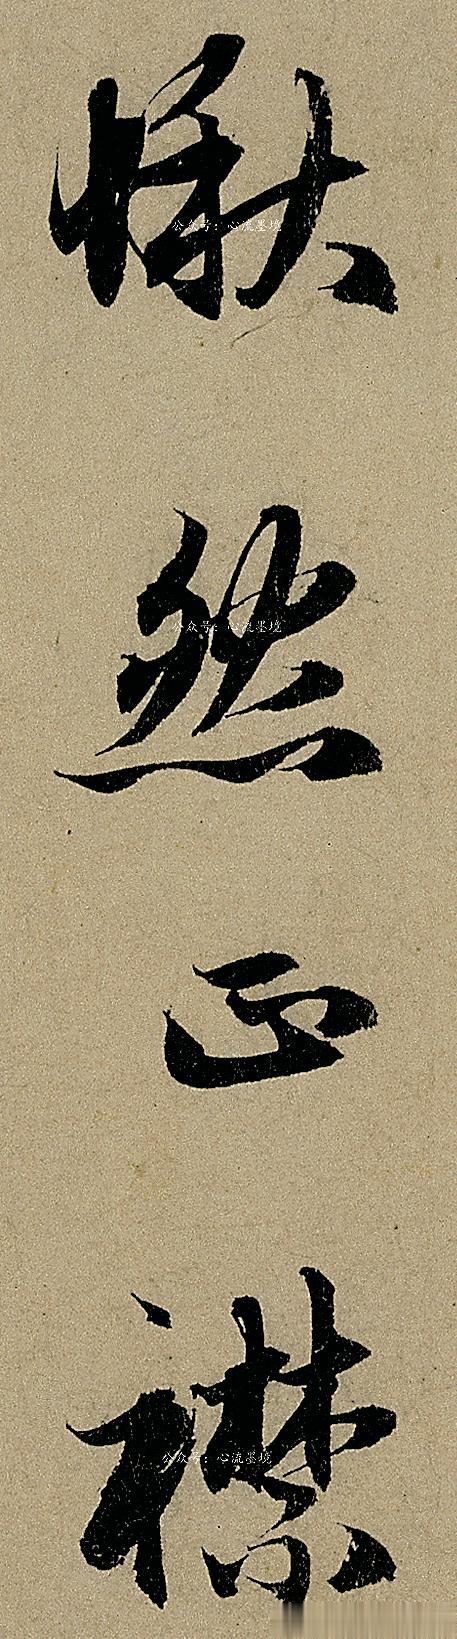 愀然正襟
公众号：心流墨境
公众号：心流墨境
公众号：心流墨境